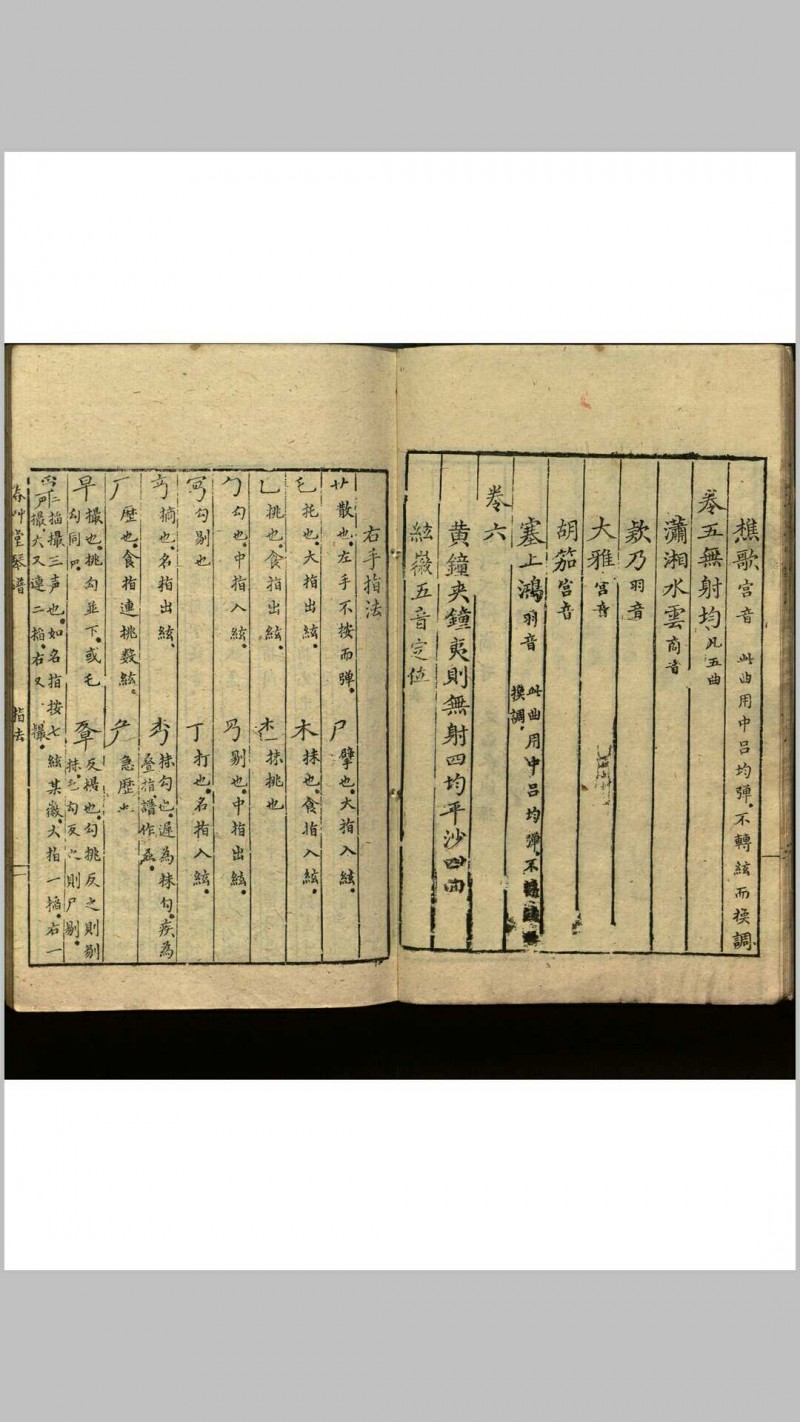 樵歌宮音 此曲用中呂均彈不轉絃而換調
卷五無射均凡五曲
瀟湘水雲商音
欸乃羽音
大雅宮音
胡笳宮音
塞上鴻羽音 此曲用中呂均彈不
換調
卷六
黃鐘夾鐘夷則無射四均平沙四曲
絃徽五音定位
右手指法
艹散也左手不按而彈 尸擘也大指入絃
乇托也大指出絃 木抹也食指入絃
乚挑也食指出絃 抹挑也
勹勾也中指入絃 剔也中指出絃
勾剔也 丁打也名指入絃
摘也名指出絃 抹勾也遲為抹勾疾為
疊指譜作
厂歷也食指連挑数絃 急歷也
早撮也挑勾並下或乇
勾同 反撮也勾挑反之則剔
抹乇勾反之則尸剔
掐撮三声也如名指按七絃某徽大指一掐右一
撮大又連二掐右又撮
春艸堂琴譜 指法 一